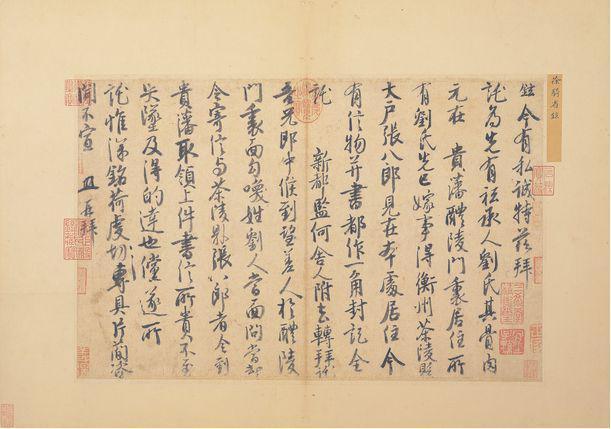 徐騎省鉉
鉉今有私誠特茲拜
託為先有祗承人劉氏其骨肉
元在 貴藩醴陵門裏居住所
有劉氏先已嫁事得衡州茶陵縣
大户張八郎見在本處居住今
有信物并書都作一角封記全
託 新都監何舍人附去轉拜託
吾兄郎中候到望差人於醴陵
門裏面勾喚姓劉人當面問當却
令寄信與茶陵縣張八郎者令到
貴藩取領上件書信所貴不至
失墜及得的達也儻遂所
託惟深銘荷虔切專具片簡咨
聞不宣 鉉再拜